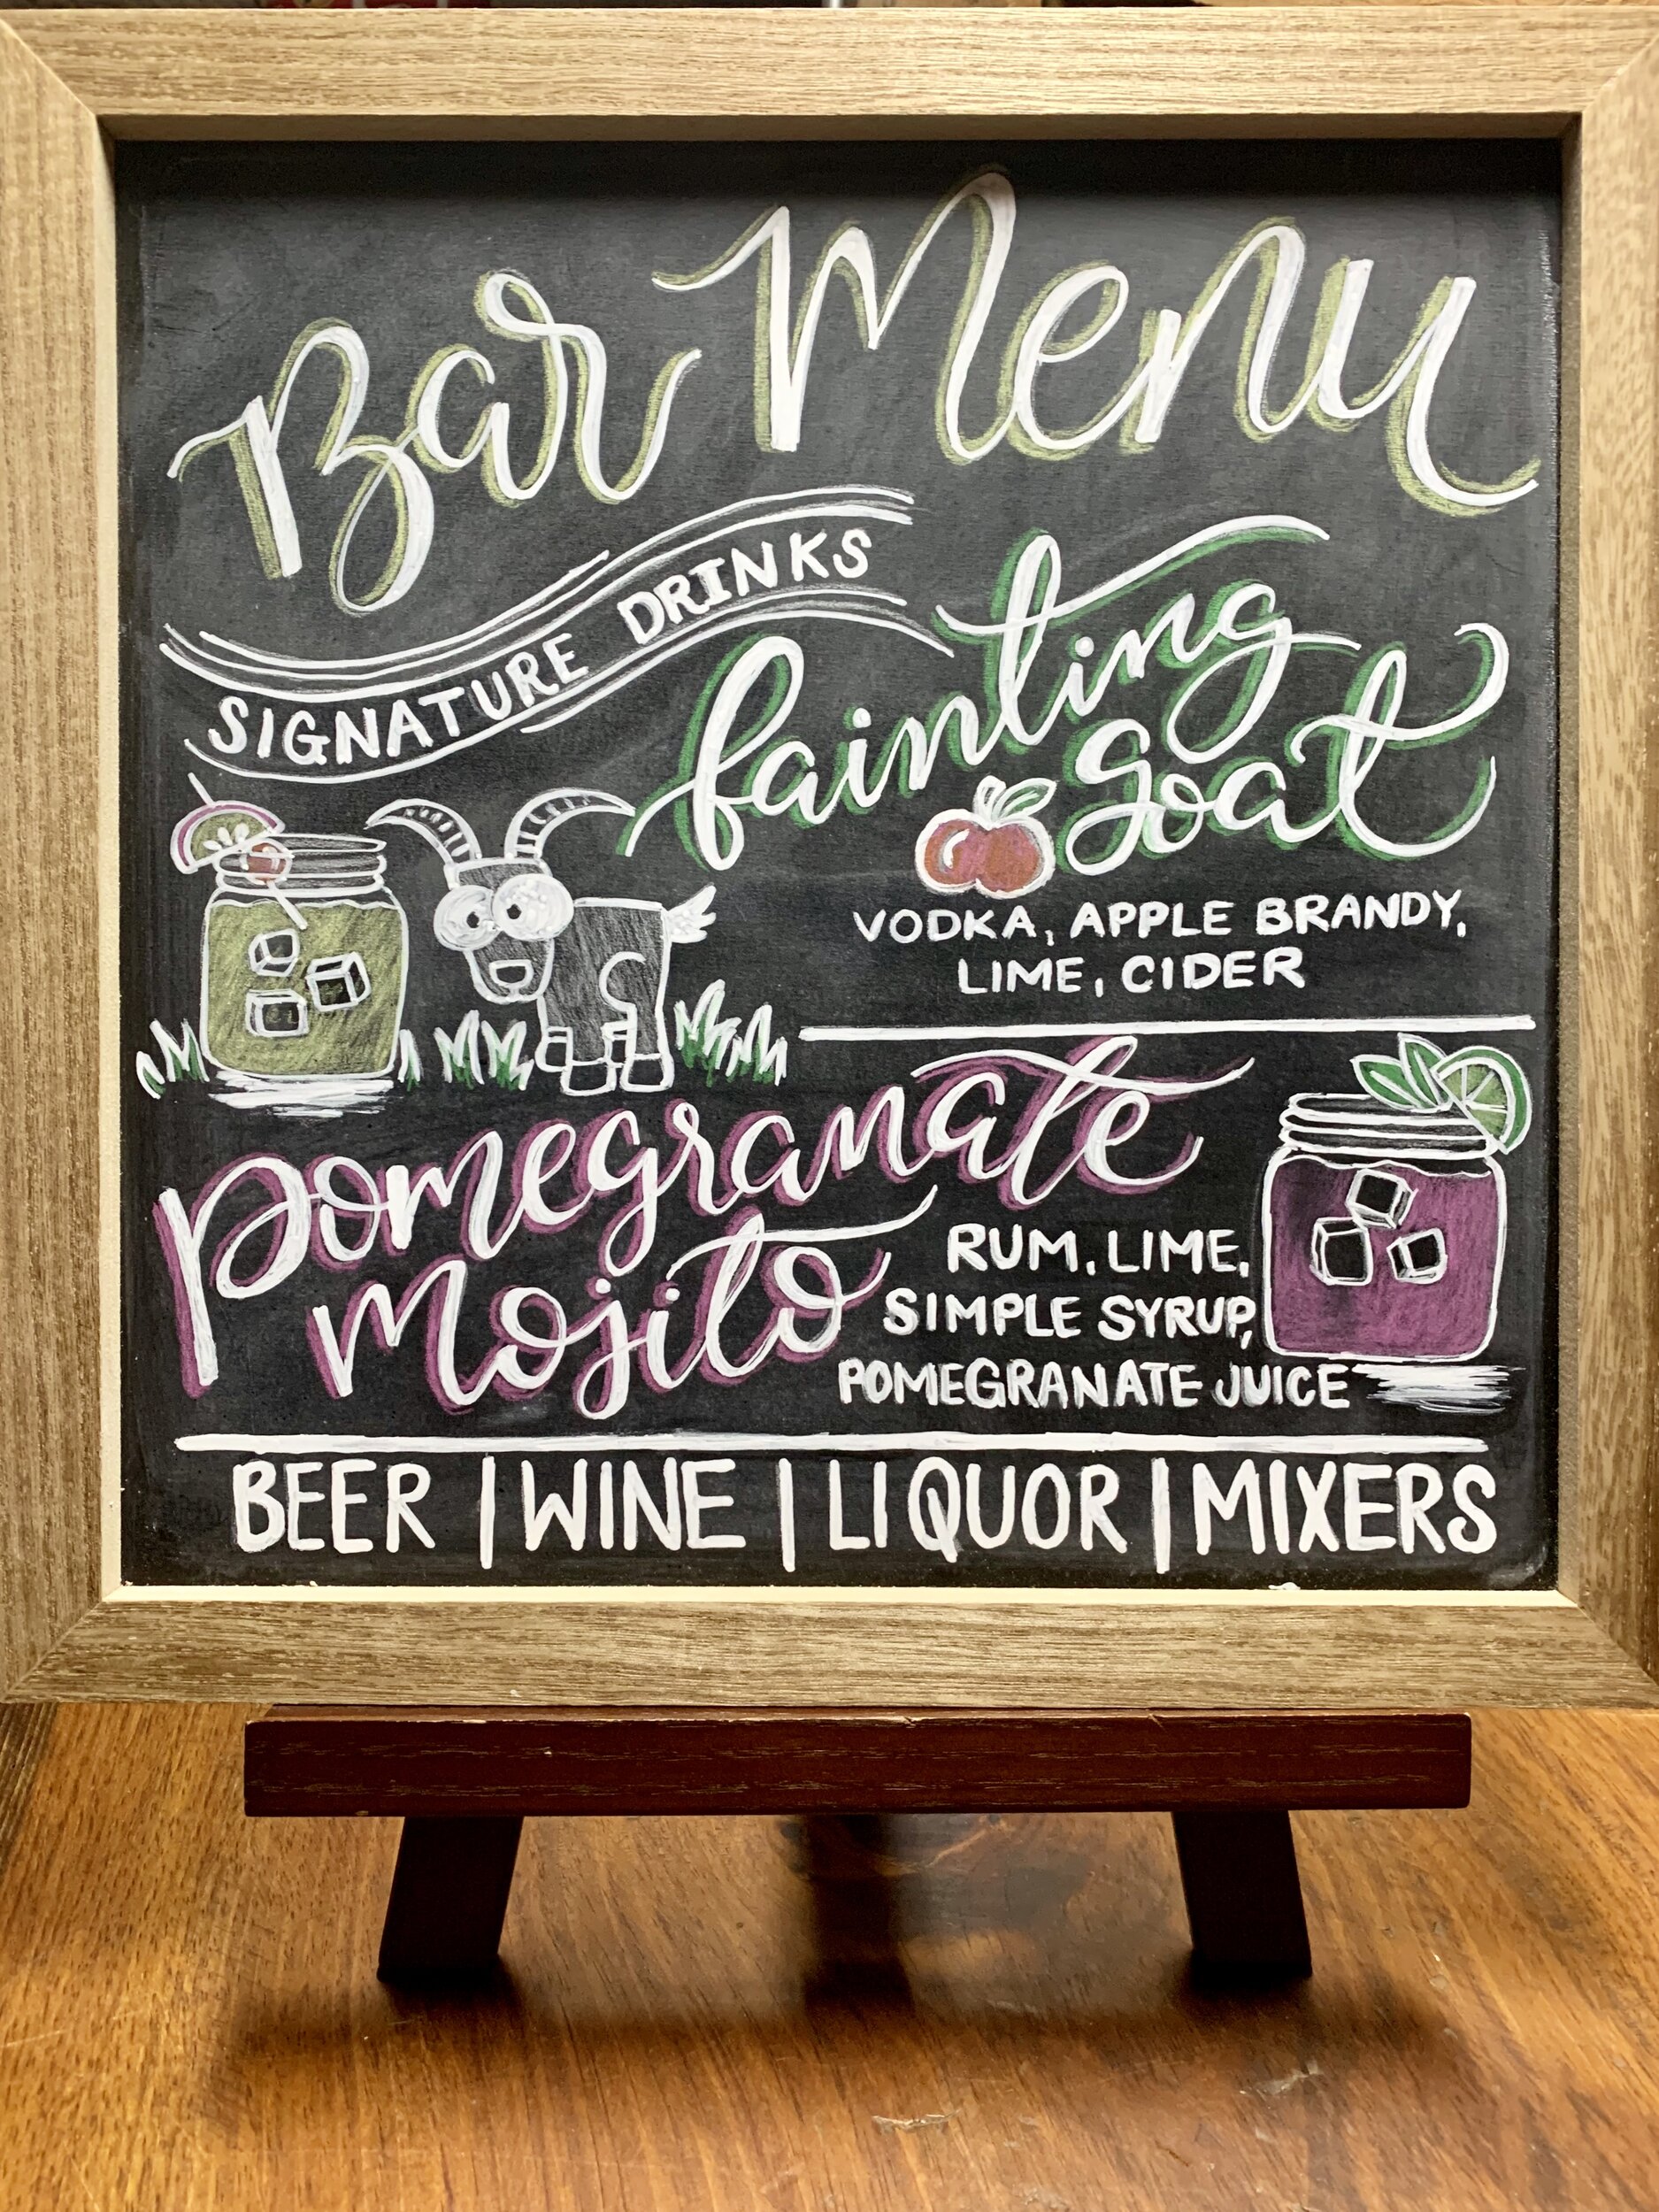 Bar Menu
SIGNATURE DRINKS
fainting
goat
VODKA, APPLE BRANDY,
LIME, CIDER
pomegranate
mojito
RUM, LIME,
SIMPLE SYRUP,
POMEGRANATE JUICE
BEER | WINE | LIQUOR | MIXERS